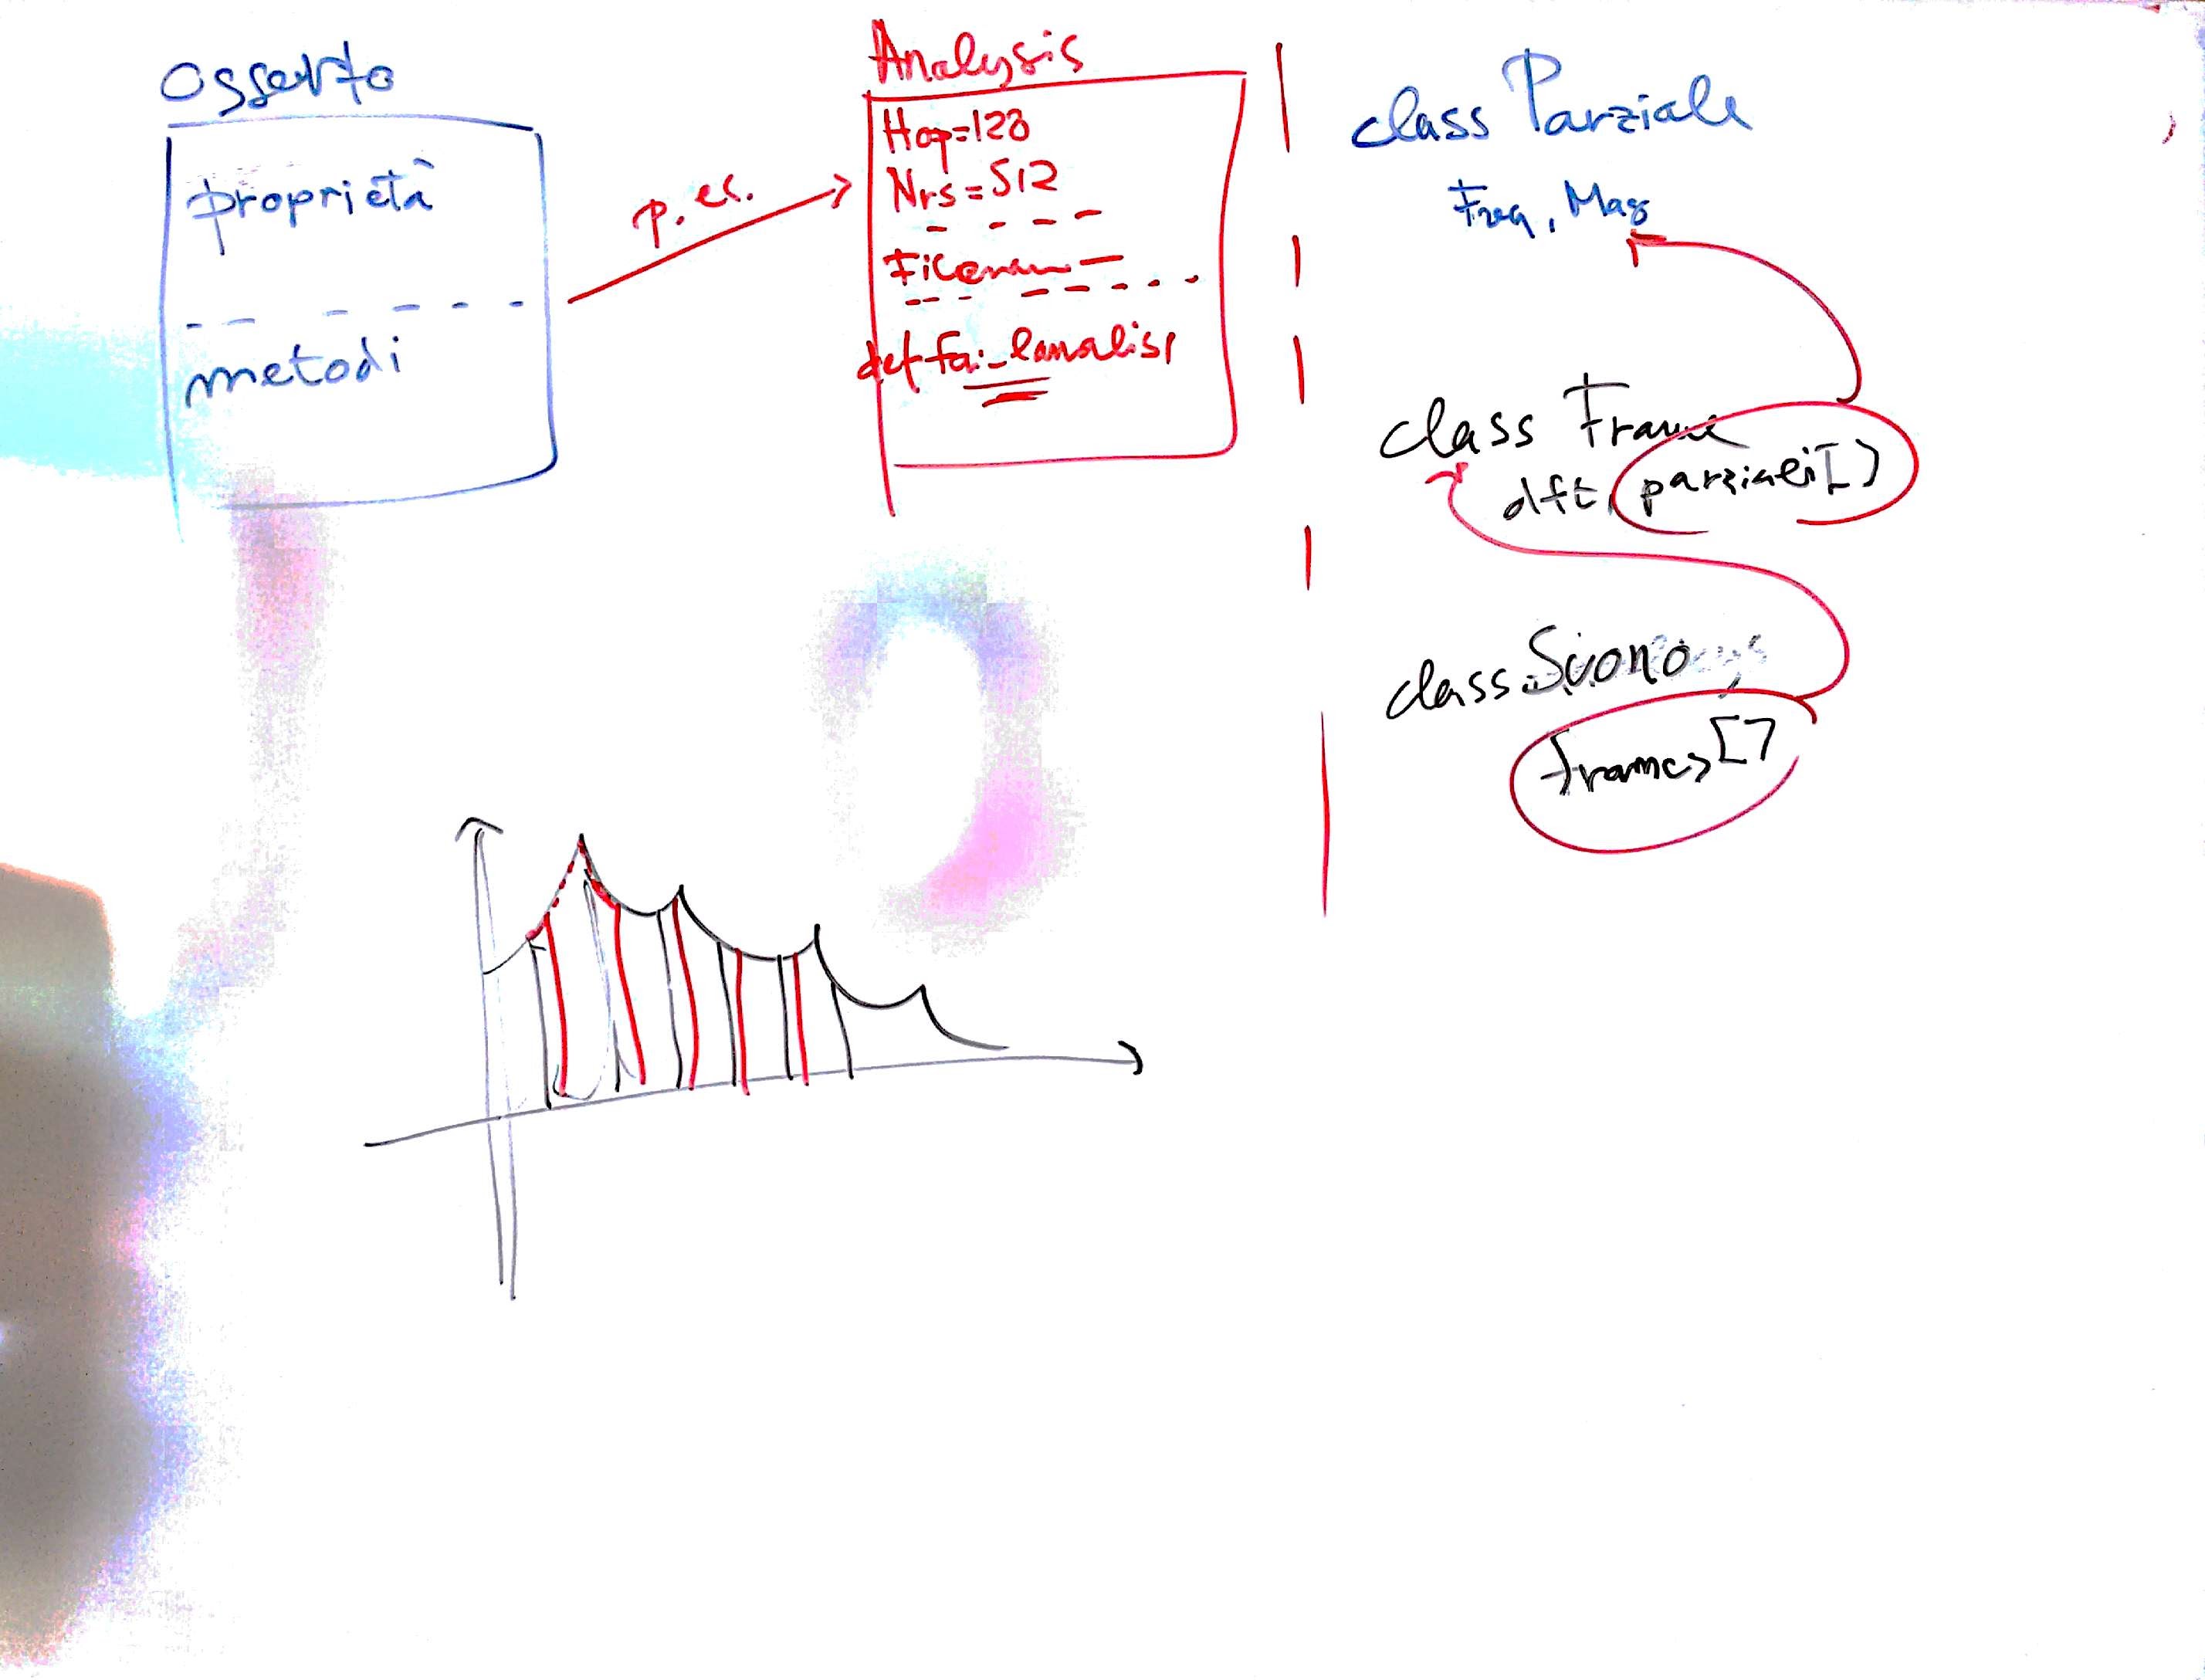 Oggetto
proprietà
metodi
p. es.
Analysis
Hop=128
Nrs=512
Filename
def fai_lanalisi
class Parziale
Freq, Mag
class Frame
dft, parziali[]
class Suono
frames[]